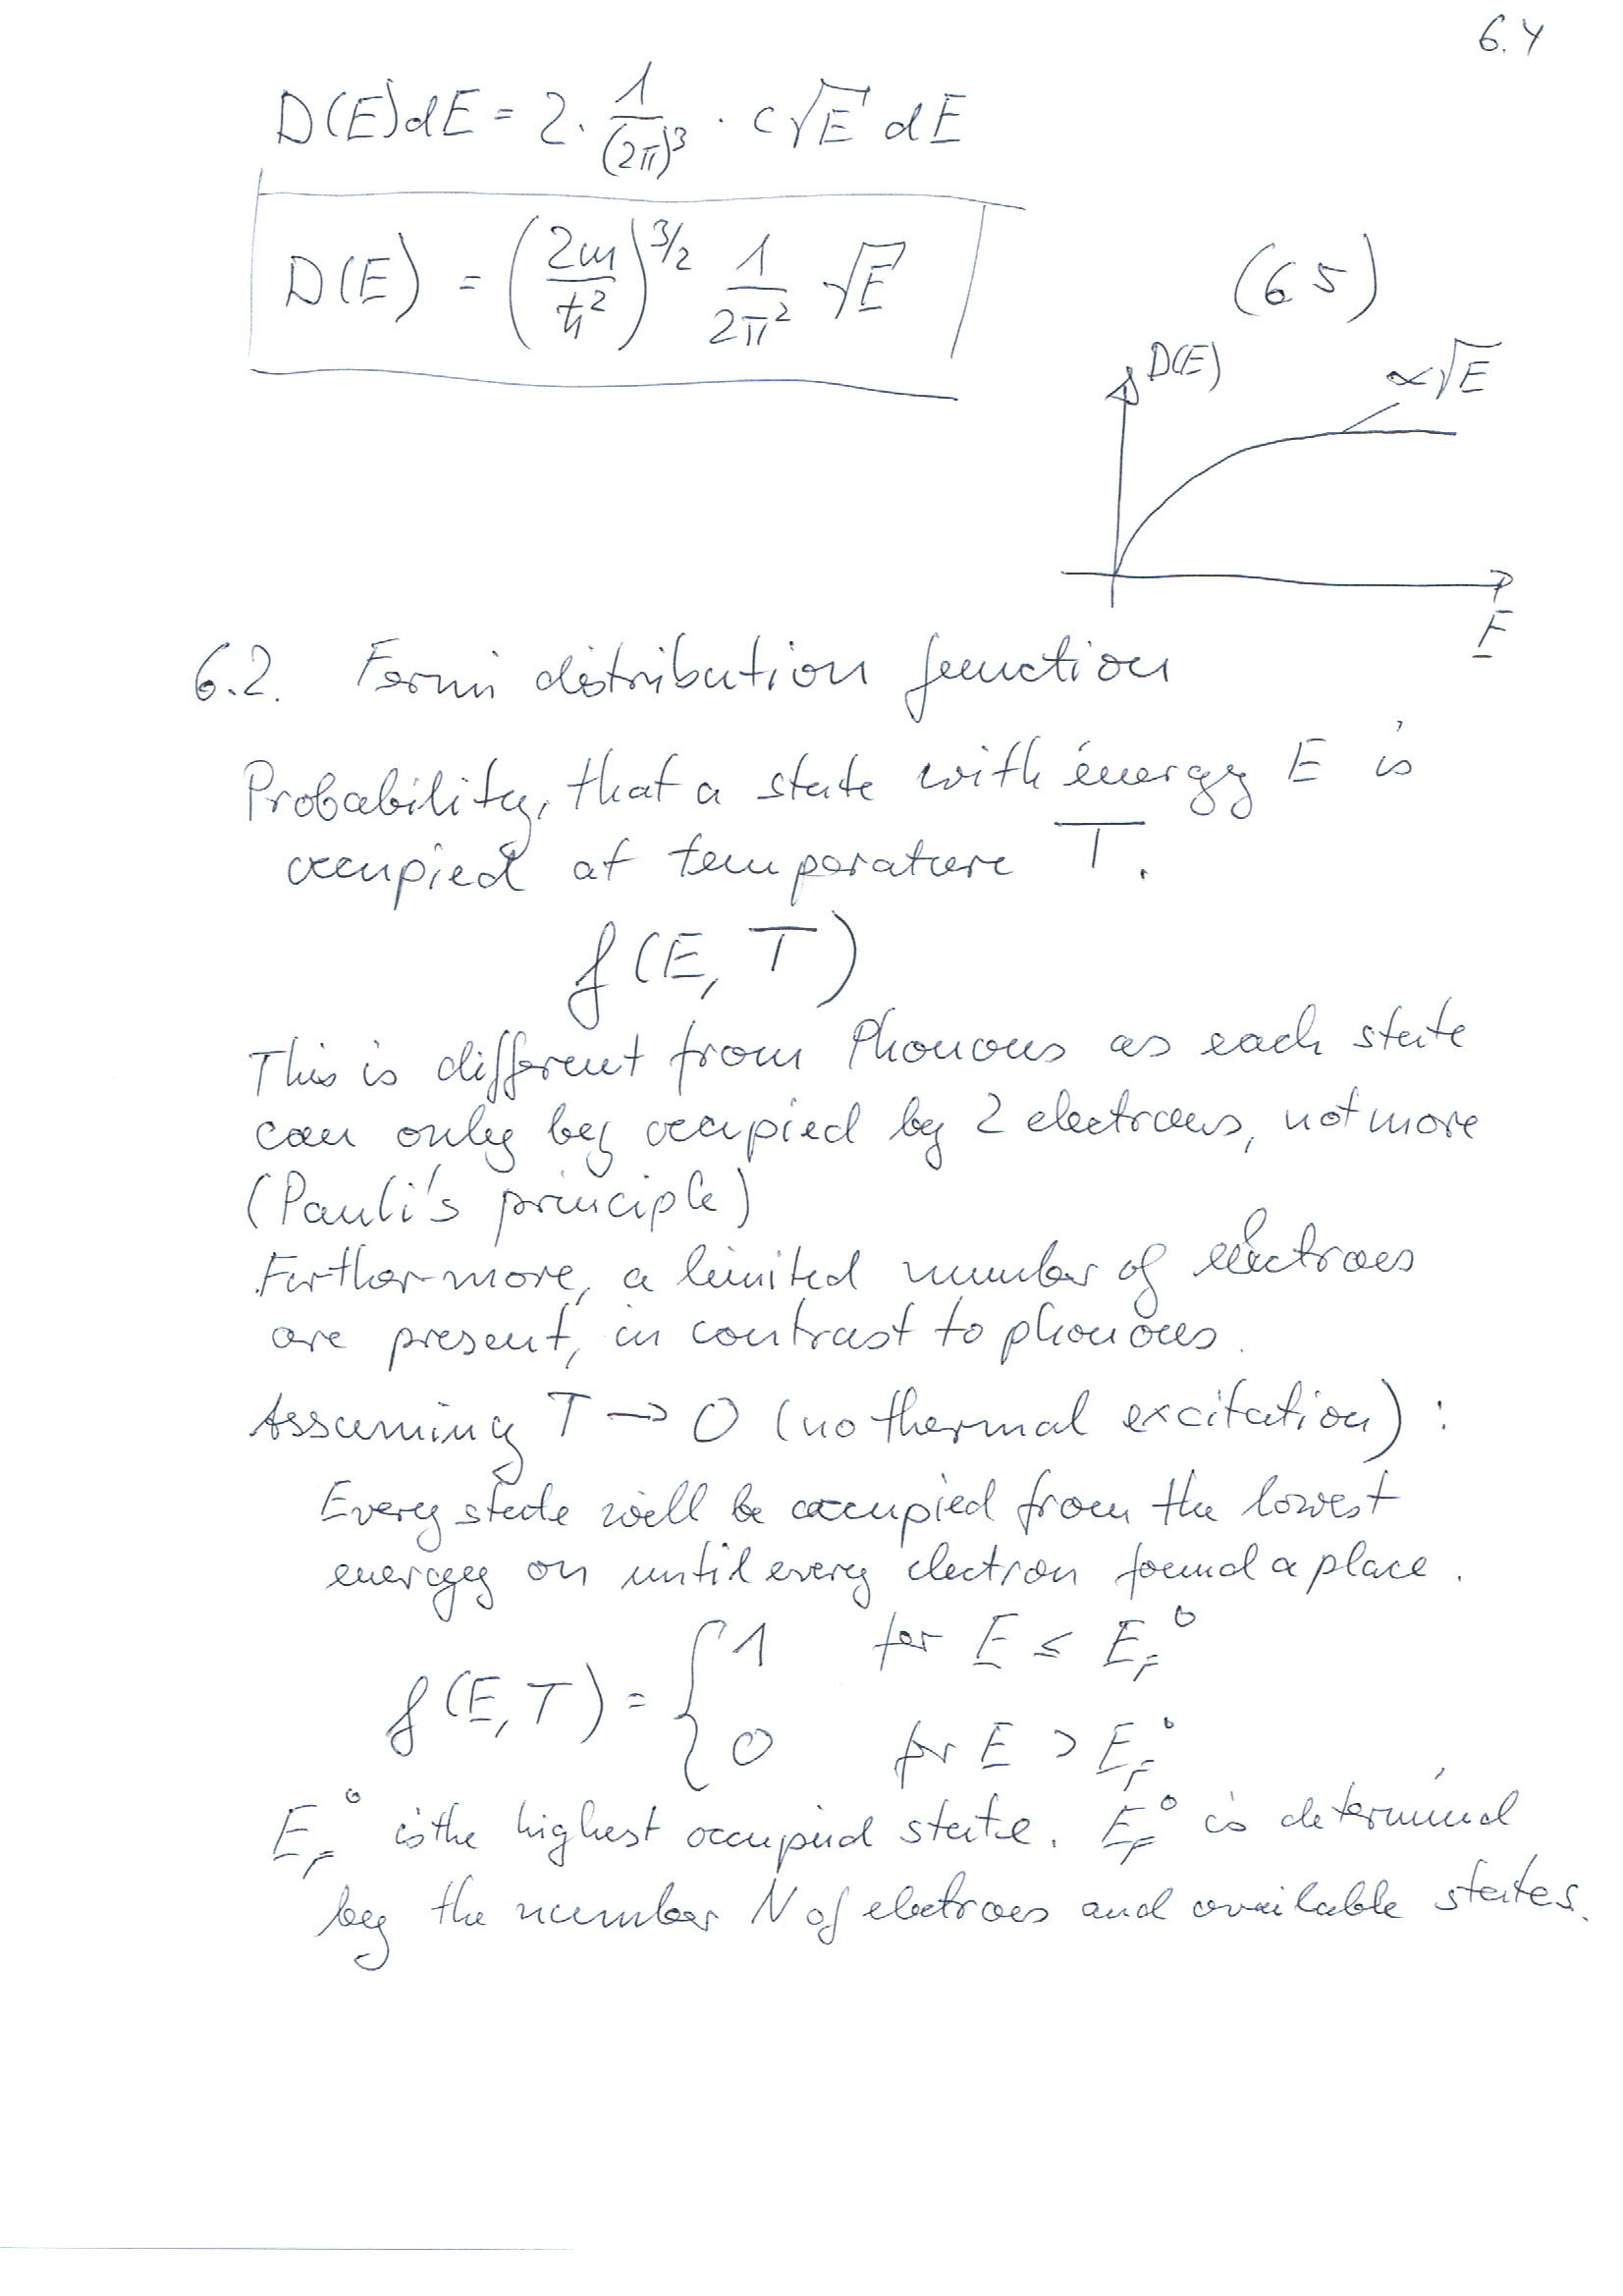 6.4
D(E)dE = 2 · 1/(2π)³ · c√E dE
D(E) = (2m/ħ²)^3/2 1/2π² √E
(6 5)
D(E)
∝√E
E
6.2. Fermi distribution function
Probability, that a state with energy E is
occupied at temperature T.
f(E, T)
This is different from Phonons as each state
can only by occupied by 2 electrons, not more
(Pauli's principle)
Furthermore, a limited number of electrons
are present, in contrast to phonons.
Assuming T → 0 (no thermal excitation) :
Every state will be occupied from the lowest
energy on until every electron found a place.
f(E, T) = { 1 for E ≤ E_F⁰
0 for E > E_F⁰
E_F⁰ is the highest occupied state. E_F⁰ is determined
by the number N of electrons and available states.